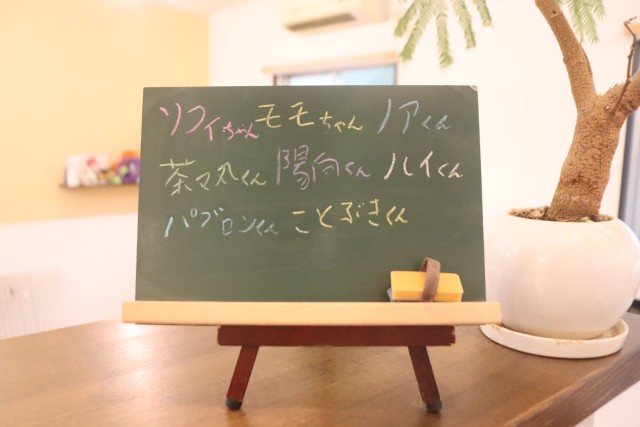 ソフィちゃん モモちゃん ノアくん
茶々丸くん 陽向くん ハイくん
パブロンくん ことぶきくん